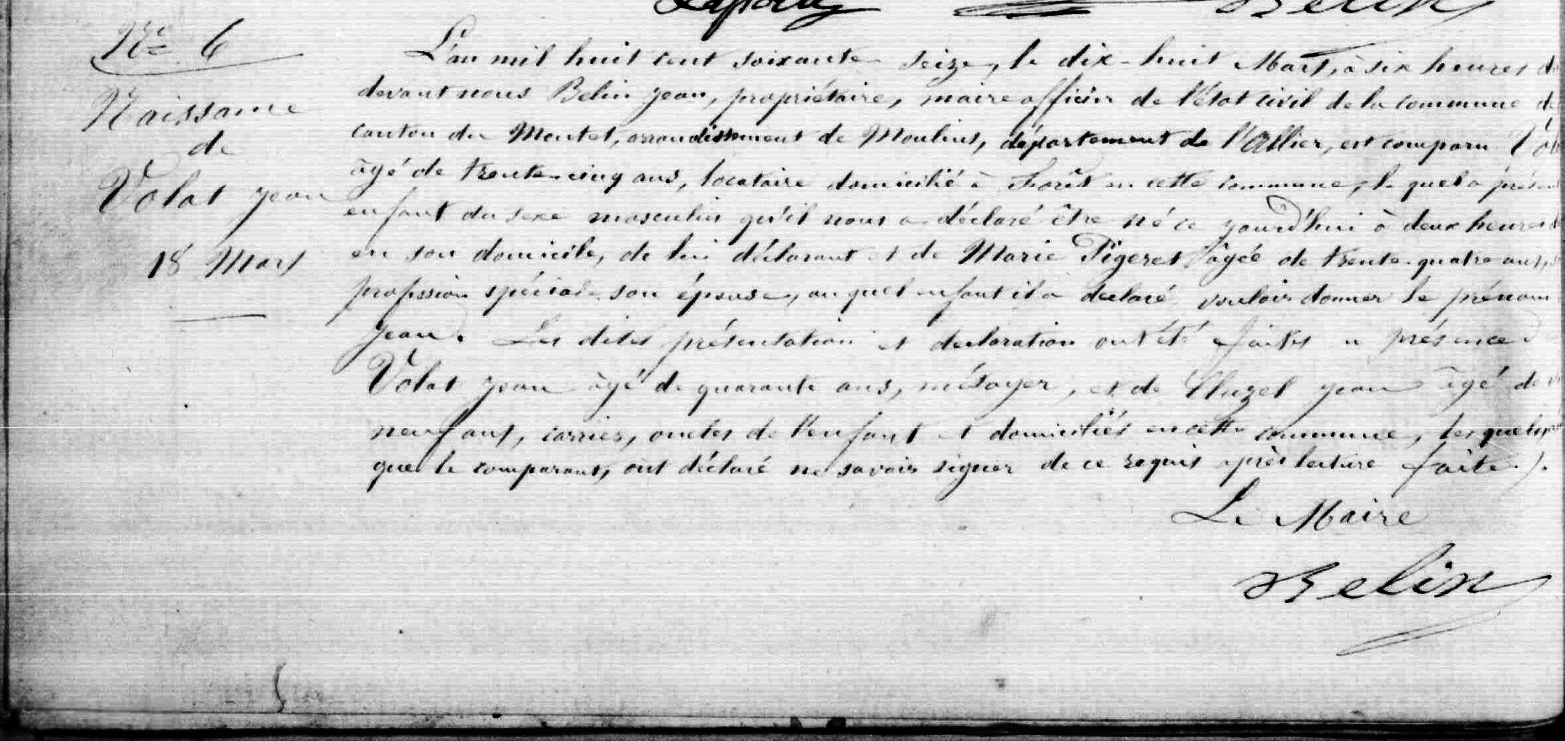 Belin
N° 6
Naissance
de
Volat Jean
18 Mars
L'an mil huit cent soixante seize, le dix-huit Mars, à six heures d
devant nous Belin Jean, propriétaire, maire officier de l'état civil de la commune de
canton du Montet, arrondissement de Moulins, département de l'Allier, est comparu Vola
âgé de trente-cinq ans, locataire domicilié à en cette commune, le quel a présen
enfant du sexe masculin qu'il nous a déclaré être né ce jourd'hui à deux heures d
en son domicile, de lui déclarant et de Marie Pigeret âgée de trente-quatre ans, s
profession spéciale son épouse, auquel enfant il a declaré vouloir donner le prénom
Jean. Les dites présentation et declaration ont été faites en présence d
Volat Jean âgé de quarante ans, métayer, et de Cluzel Jean âgé de
neuf ans, carrier, oncles de l'enfant et domiciliés en cette commune, les quels
que le comparant, ont déclaré ne savoir signer de ce requis après lecture faite ./.
Le Maire
Belin